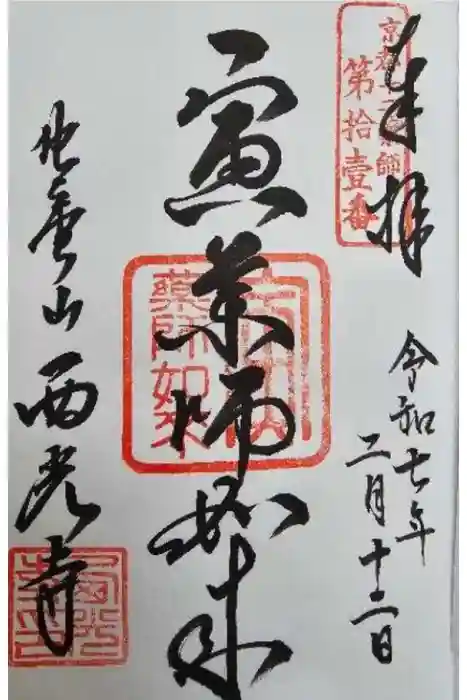 京都十二薬師
第拾壹番
奉拝
令和七年
二月十二日
寅薬師如来
薬師如来
西光寺